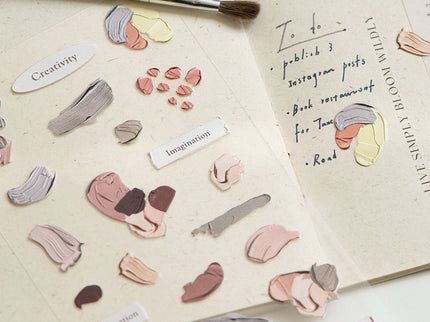 Creativity
Imagination
To do
• publish 3
Instagram posts
• Book restaurant
for
• Read
LIVE SIMPLY BLOOM WILDLY